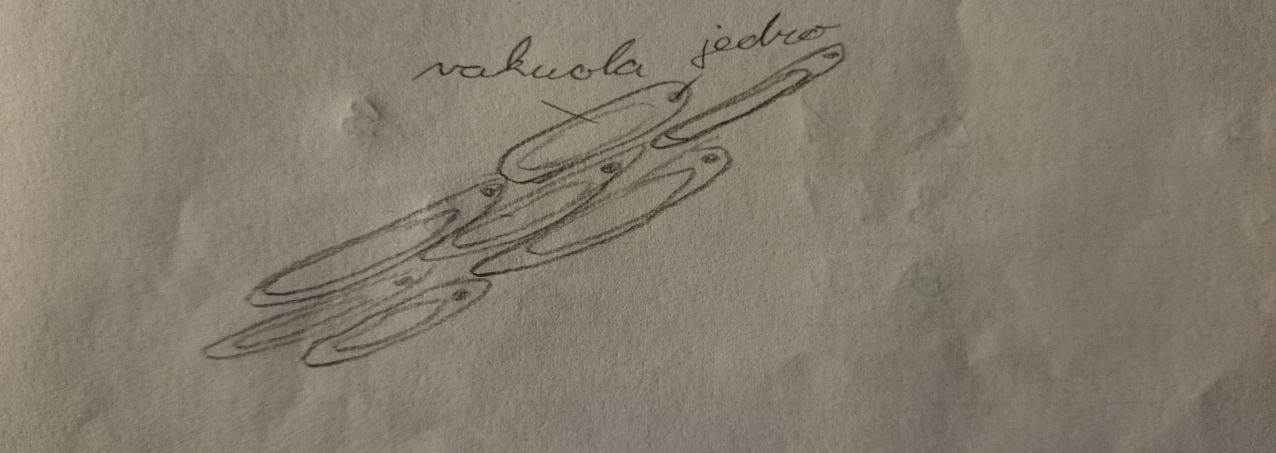 vakuola jedro